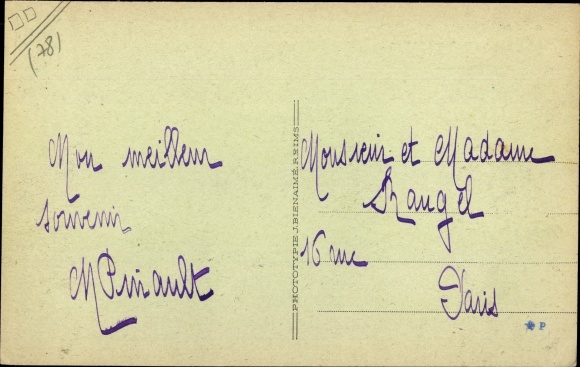 (78)
Mon meilleur
souvenir
MPinault
PHOTOTYPIE J. BIENAIMÉ, REIMS
Monsieur et Madame
Raugel
16 rue
Paris
P